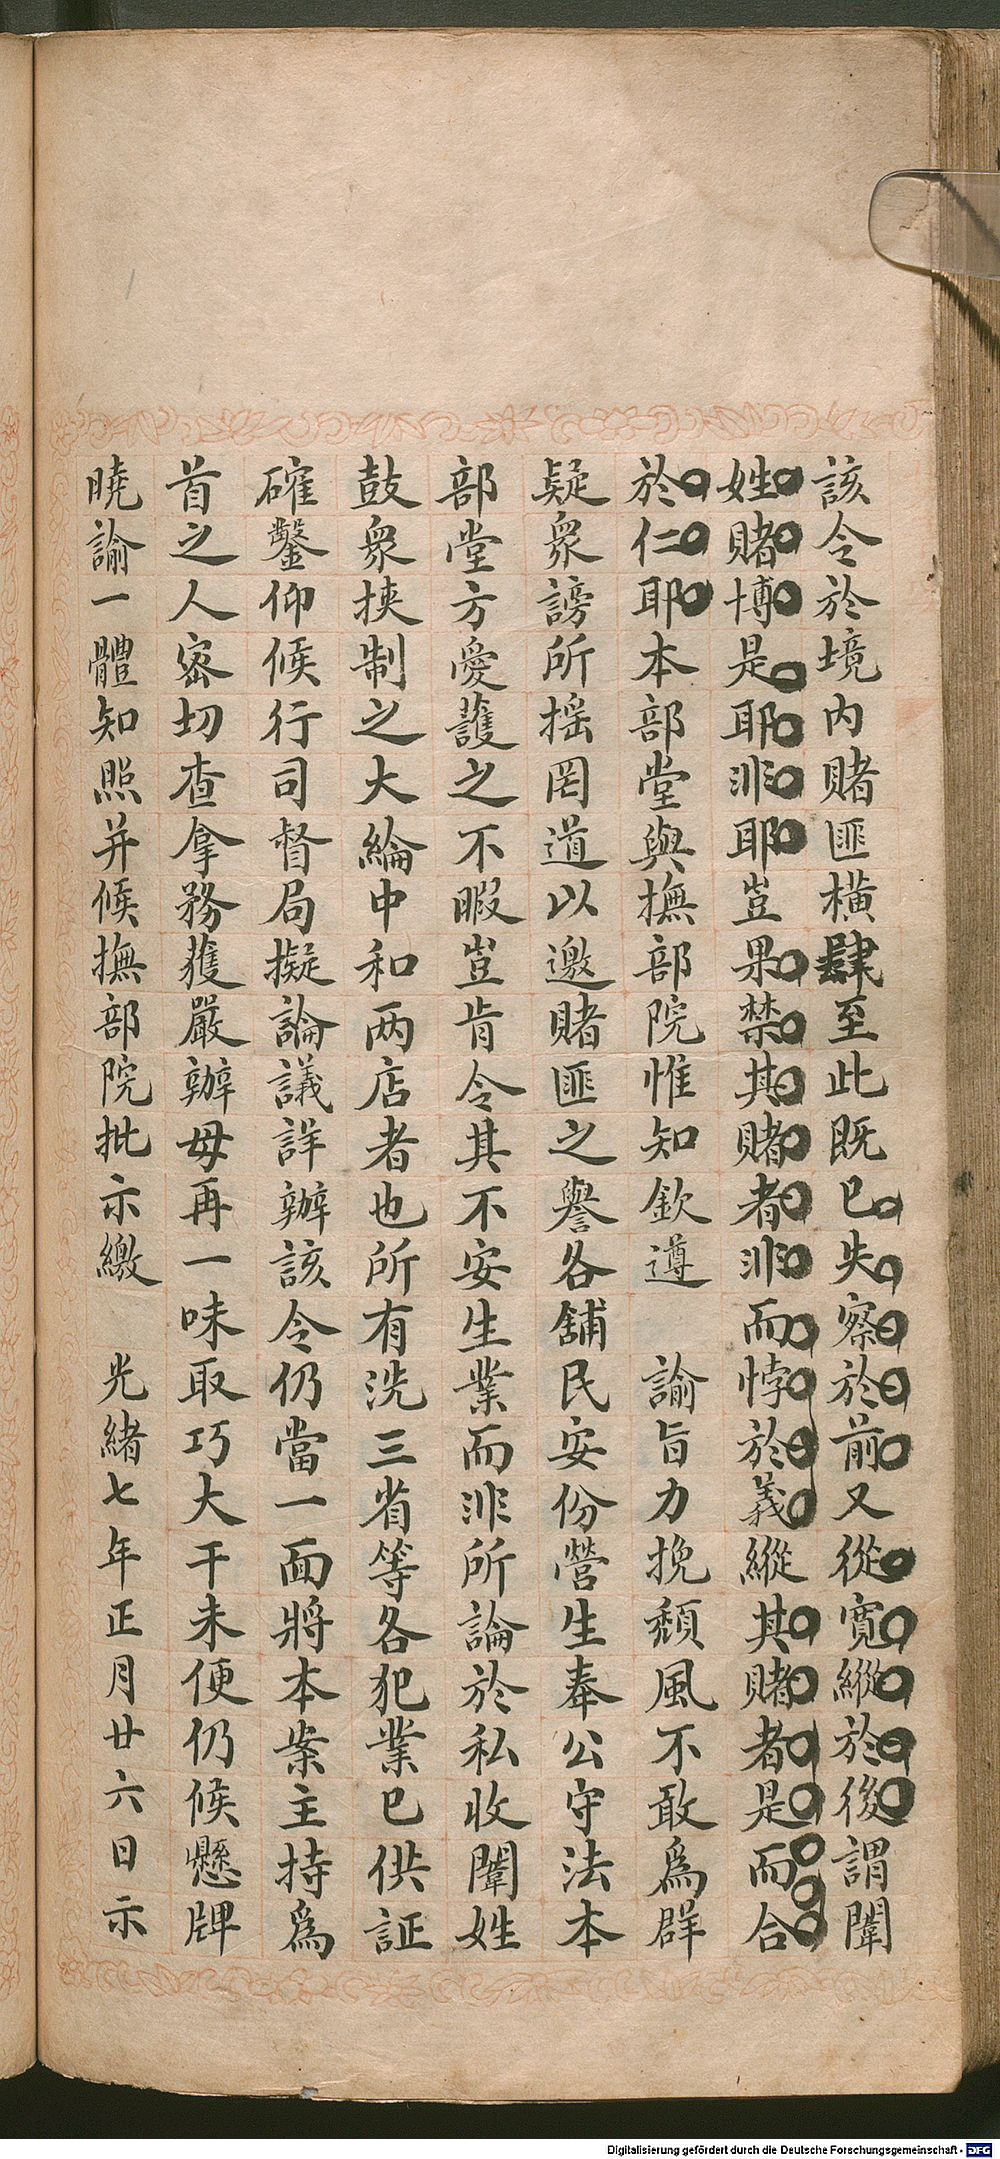 該令於境內賭匪橫肆至此既已失察於前又從寬縱於後謂闈
姓賭博是耶非耶豈果禁其賭者非而悖於義縱其賭者是而合
於仁耶本部堂與撫部院惟知欽遵 諭旨力挽頹風不敢為群
疑衆謗所搖罔道以邀賭匪之譽各舖民安份營生奉公守法本
部堂方愛護之不暇豈肯令其不安生業而非所論於私收闈姓
鼓衆挾制之大綸中和两店者也所有洗三省等各犯業已供証
確鑿仰候行司督局擬論議詳辦該令仍當一面將本案主持為
首之人密切查拿務獲嚴辦毋再一味取巧大干未便仍候懸牌
曉諭一體知照并候撫部院批示繳 光緒七年正月廿六日示
Digitalisierung gefördert durch die Deutsche Forschungsgemeinschaft - DFG